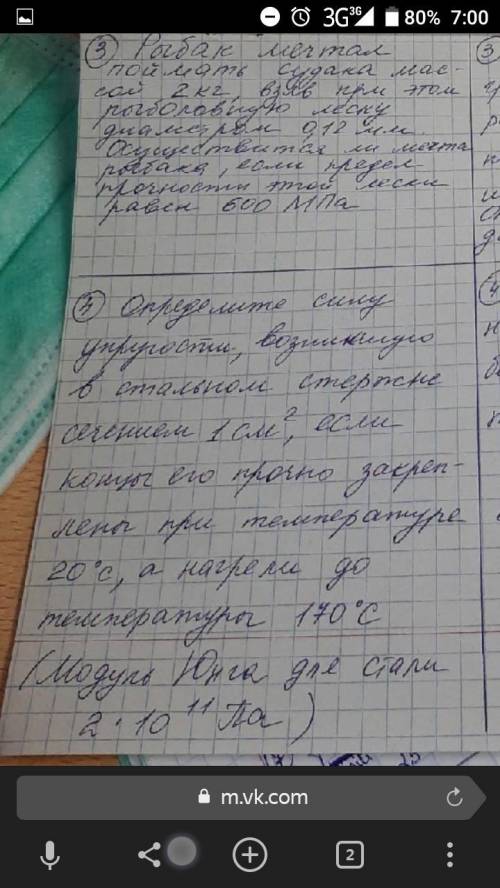 3G 36 80% 7:00
③ Рыбак мечтал
поймать судака мас-
сой 2 кг, взяв при этом
рыболовную леску
диаметром 0,12 мм.
Осуществится ли мечта
рыбака, если предел
прочности этой лески
равен 600 МПа
④ Определите силу
упругости, возникшую
в стальном стержне
сечением 1 см², если
концы его прочно закреп-
лены при температуре
20°С, а нагрели до
температуры 170°С
(Модуль Юнга для стали
2·10¹¹ Па)
m.vk.com
2